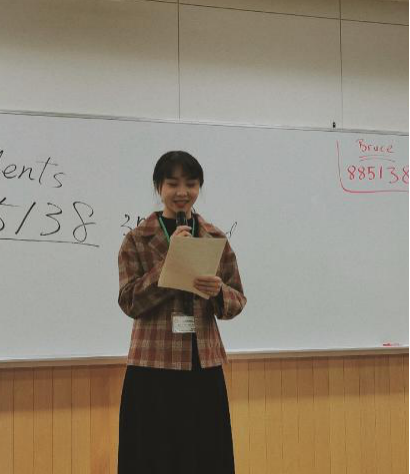 ents
5138
Bruce
885138